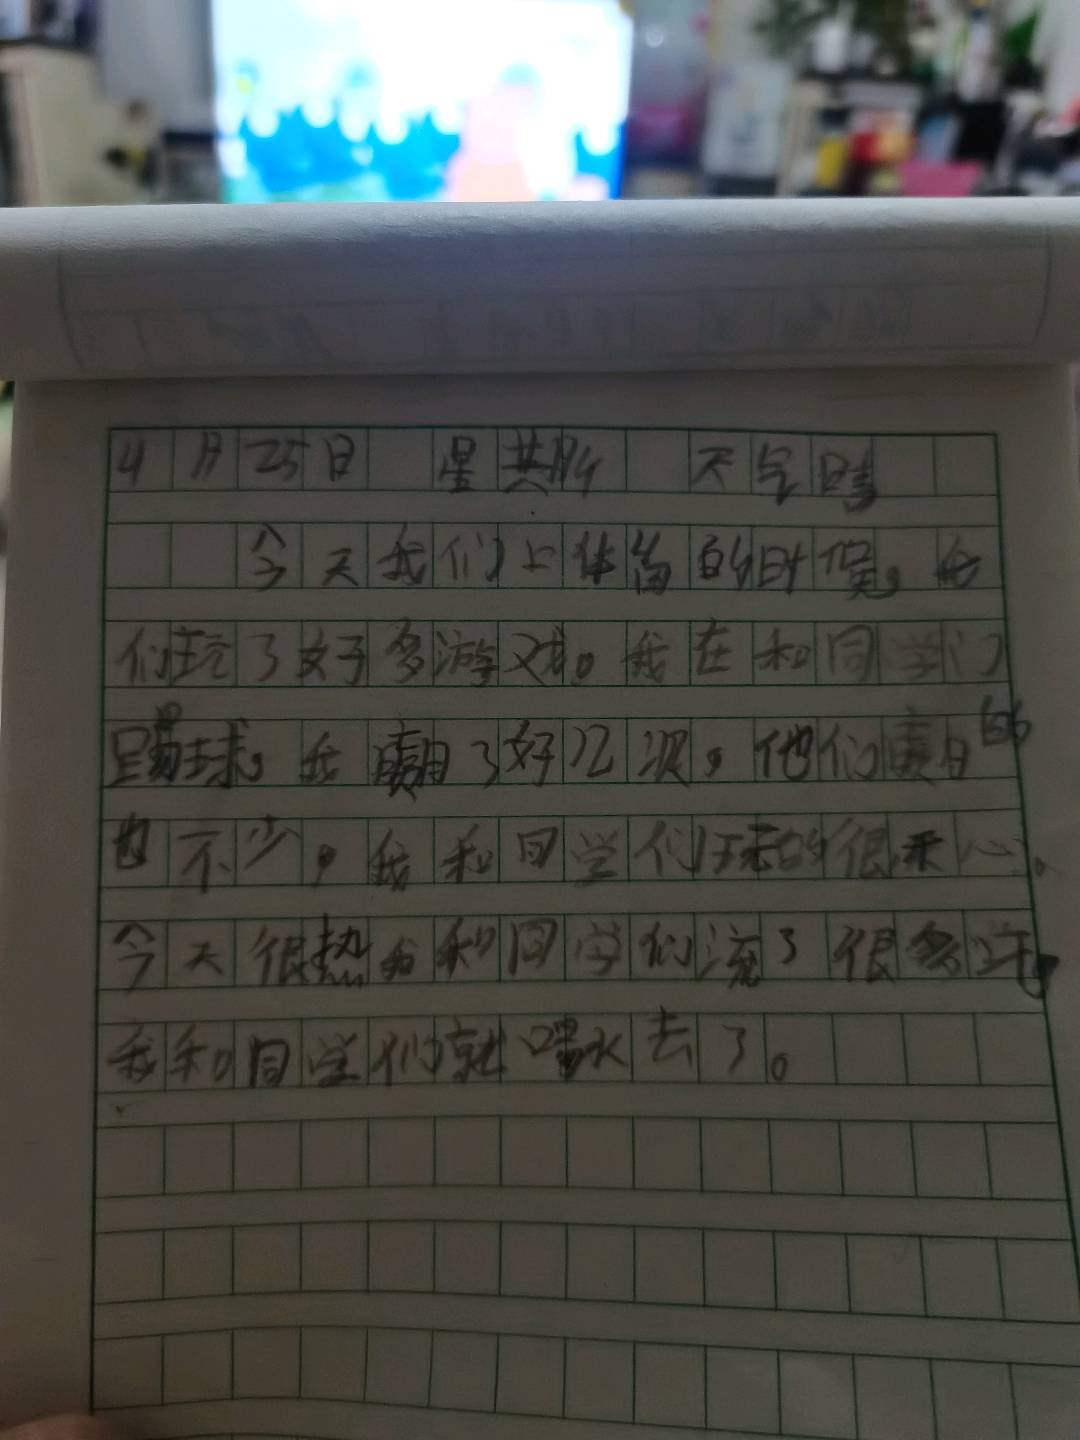 4月25日 星期4 天气晴
今天我们上体育的时候。我
们玩了好多游戏。我在和同学门
踢球。我赢了好几次，他们赢的
也不少，我和同学们玩的很开心。
今天很热我和同学们流了很多汗。
我和同学们就喝水去了。